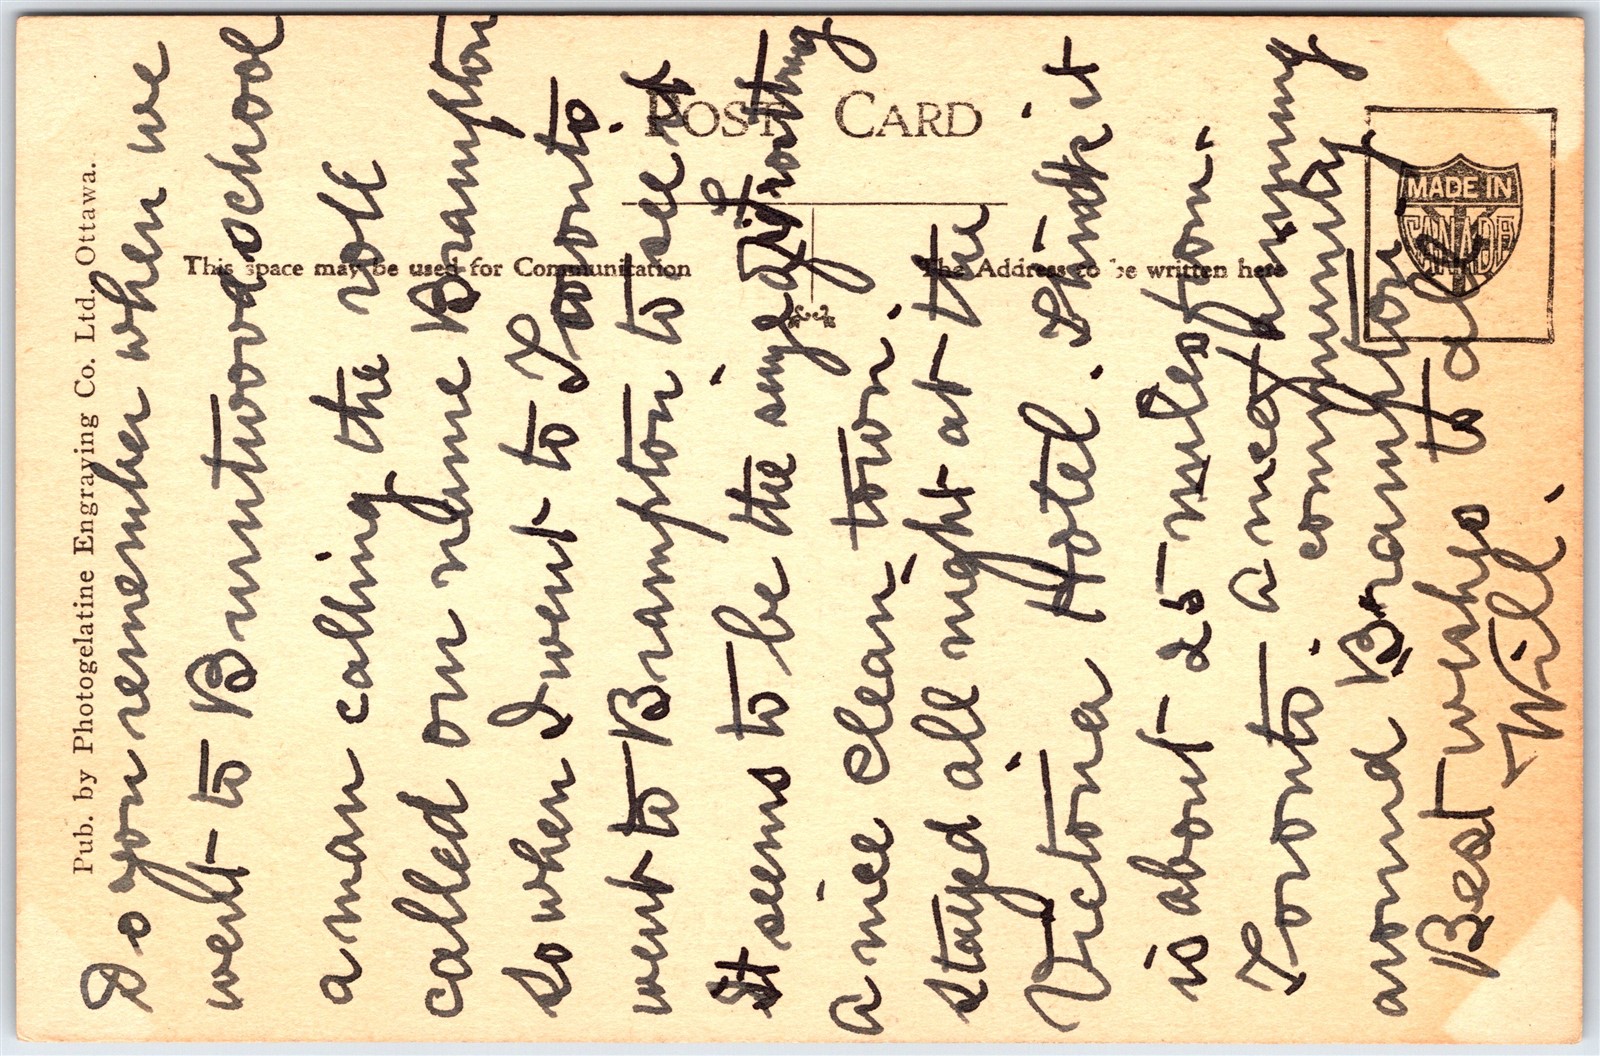 POST CARD
This space may be used for Communication
The Address to be written here
MADE IN
CANADA
Pub. by Photogelatine Engraving Co. Ltd., Ottawa.
Do you remember when we
went to Bruntwood school
a man calling the role
called our name Brampton
so when I went to Toronto.
went to Brampton to see it
It seems to be the
a nice clean town.
stayed all night at the
Victoria Hotel. I think it
is about 25 miles from
Toronto. A nice farming
community
around Brampton.
Best wishes to all
Will.